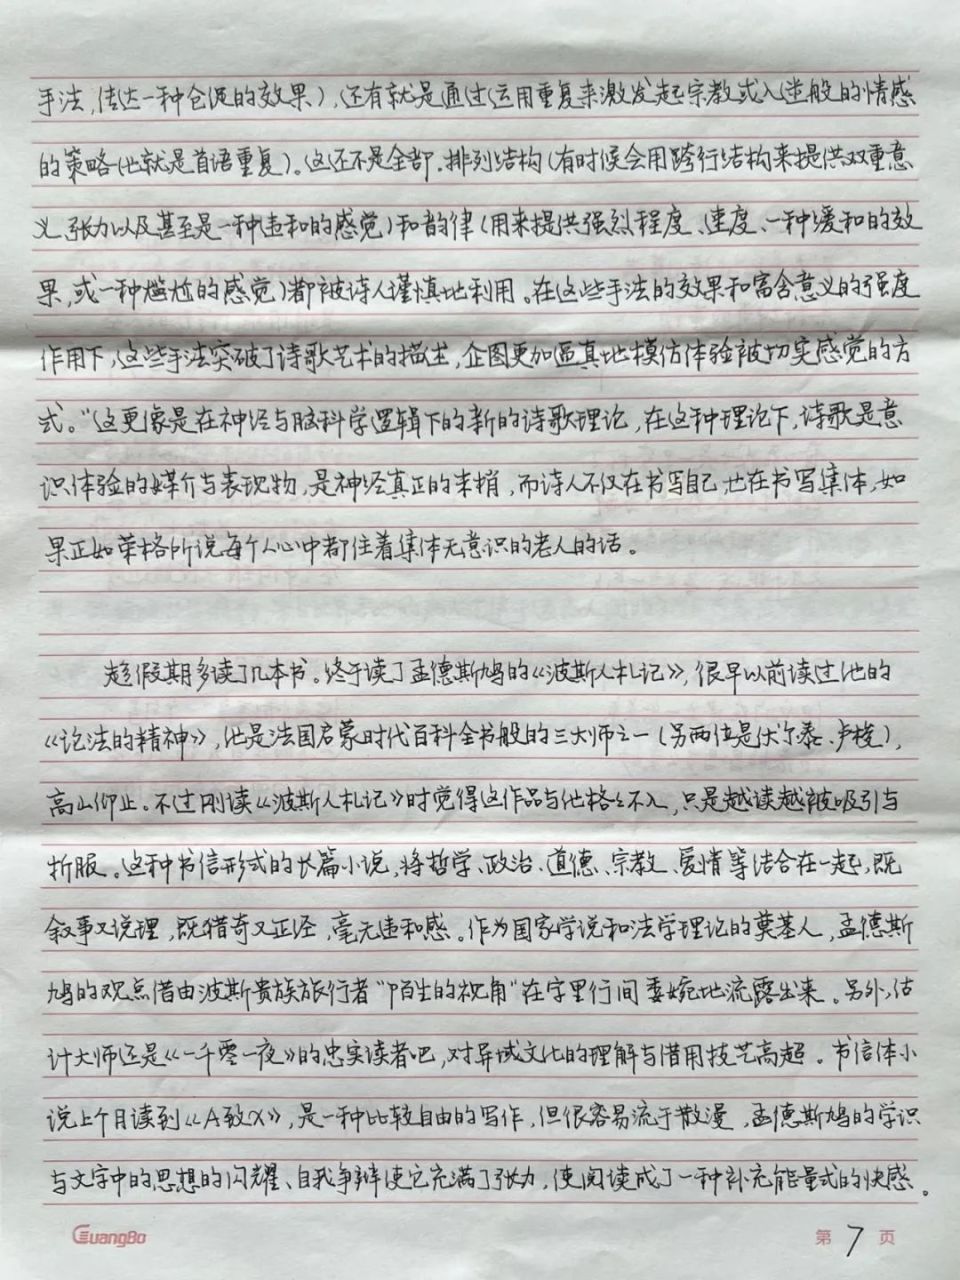 手法,传达一种仓促的效果),还有就是通过运用重复来激发起宗教或入迷般的情感
的策略(也就是首语重复)。这还不是全部.排列结构(有时候会用跨行结构来提供双重意
义、张力以及甚至是一种违和的感觉)和韵律(用来提供强烈程度、速度、一种缓和的效
果,或一种尴尬的感觉)都被诗人谨慎地利用。在这些手法的效果和富含意义的强度
作用下,这些手法突破了诗歌艺术的描述,企图更加逼真地模仿体验被切实感觉的方
式。”这更像是在神经与脑科学逻辑下的新的诗歌理论,在这种理论下,诗歌是意
识体验的媒介与表现物,是神经真正的末梢,而诗人不仅在书写自己,也在书写集体,如
果正如荣格所说每个人心中都住着集体无意识的老人的话。
趁假期多读了几本书。终于读了孟德斯鸠的《波斯人札记》,很早以前读过他的
《论法的精神》,他是法国启蒙时代百科全书般的三大师之一(另两位是伏尔泰、卢梭),
高山仰止。不过刚读《波斯人札记》时觉得这作品与他格格不入,只是越读越被吸引与
折服。这种书信形式的长篇小说,将哲学、政治、道德、宗教、爱情等结合在一起,既
叙事又说理,既猎奇又正经,毫无违和感。作为国家学说和法学理论的奠基人,孟德斯
鸠的观点借由波斯贵族旅行者“陌生的视角”在字里行间委婉地流露出来。另外,估
计大师还是《一千零一夜》的忠实读者吧,对异域文化的理解与借用技艺高超。书信体小
说上个月读到《A致X》,是一种比较自由的写作,但很容易流于散漫,孟德斯鸠的学识
与文字中的思想的闪耀、自我争辩使它充满了张力,使阅读成了一种补充能量式的快感。
GuangBo
第 7 页